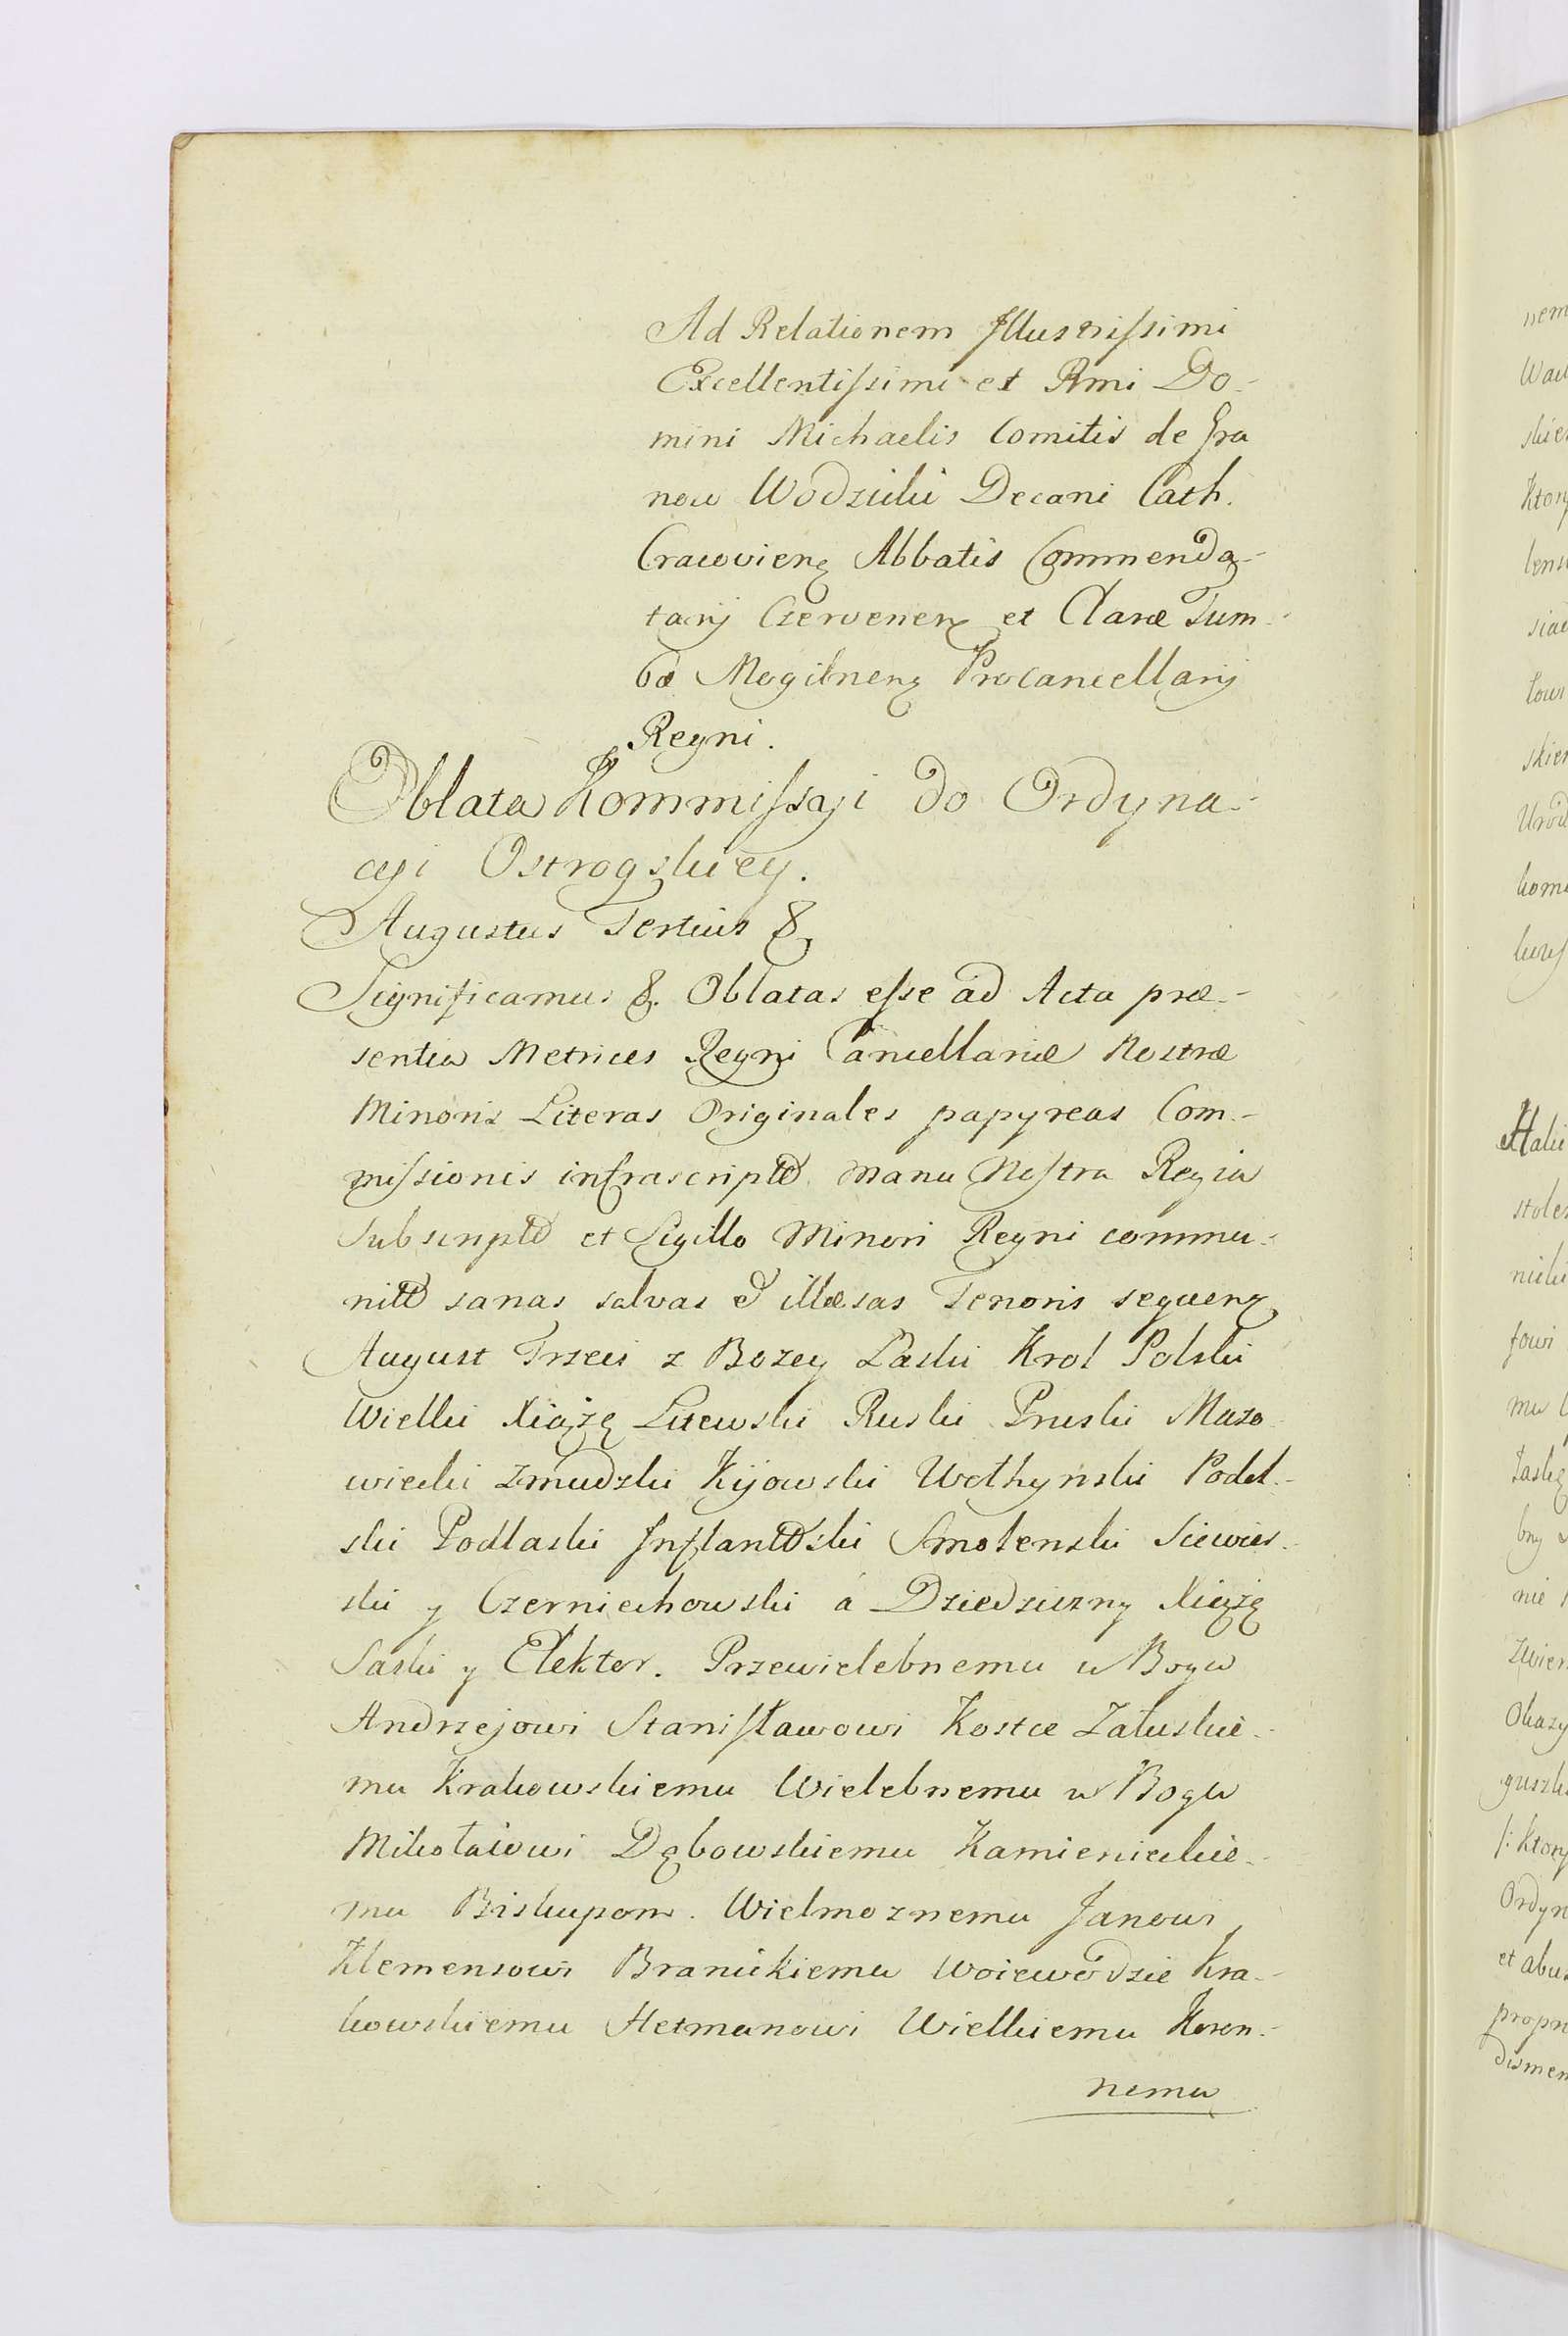 Ad Relationem Illustrissimi
Excellentissimi et Rmi Do-
mini Michaelis Comitis de Gra
now Wodzicki Decani Cath.
Cracovienz Abbatis Commenda-
tarij Czervenenz et Claræ Tum-
bæ Mogilnenz Procancellarij
Regni.
Oblata Kommissyi do Ordyna-
cyi Ostrogskiey.
Augustus Tertius &
Significamus &. Oblatas esse ad Acta præ-
sentia Metrices Regni Cancellariæ Nostræ
Minoris Literas Originales papyreas Com-
missionis infrascriptæ manu Nostra Regia
Subscriptæ et Sigillo Minori Regni commu-
nitæ sanas salvas & illæsas Tenoris sequenz
August Trzeci z Bozey Łaski Krol Polski
Wielki Xiążę Litewski Ruski Pruski Mazo
wiecki Zmudzki Kijowski Wołhynski Podol-
ski Podlaski Inflantski Smolenski Siewier-
ski y Czerniechowski á Dziedziczny Xiążę
Saski y Elektor. Przewielebnemu w Bogu
Andrzejowi Stanisławowi Kostce Załuskie-
mu Krakowskiemu Wielebnemu w Bogu
Mikołaiowi Dębowskiemu Kamienieckie-
mu Biskupom. Wielmoznemu Janowi
Klemensowi Branickiemu Woiewodzie Kra-
kowskiemu Hetmanowi Wielkiemu Koron-
nemu